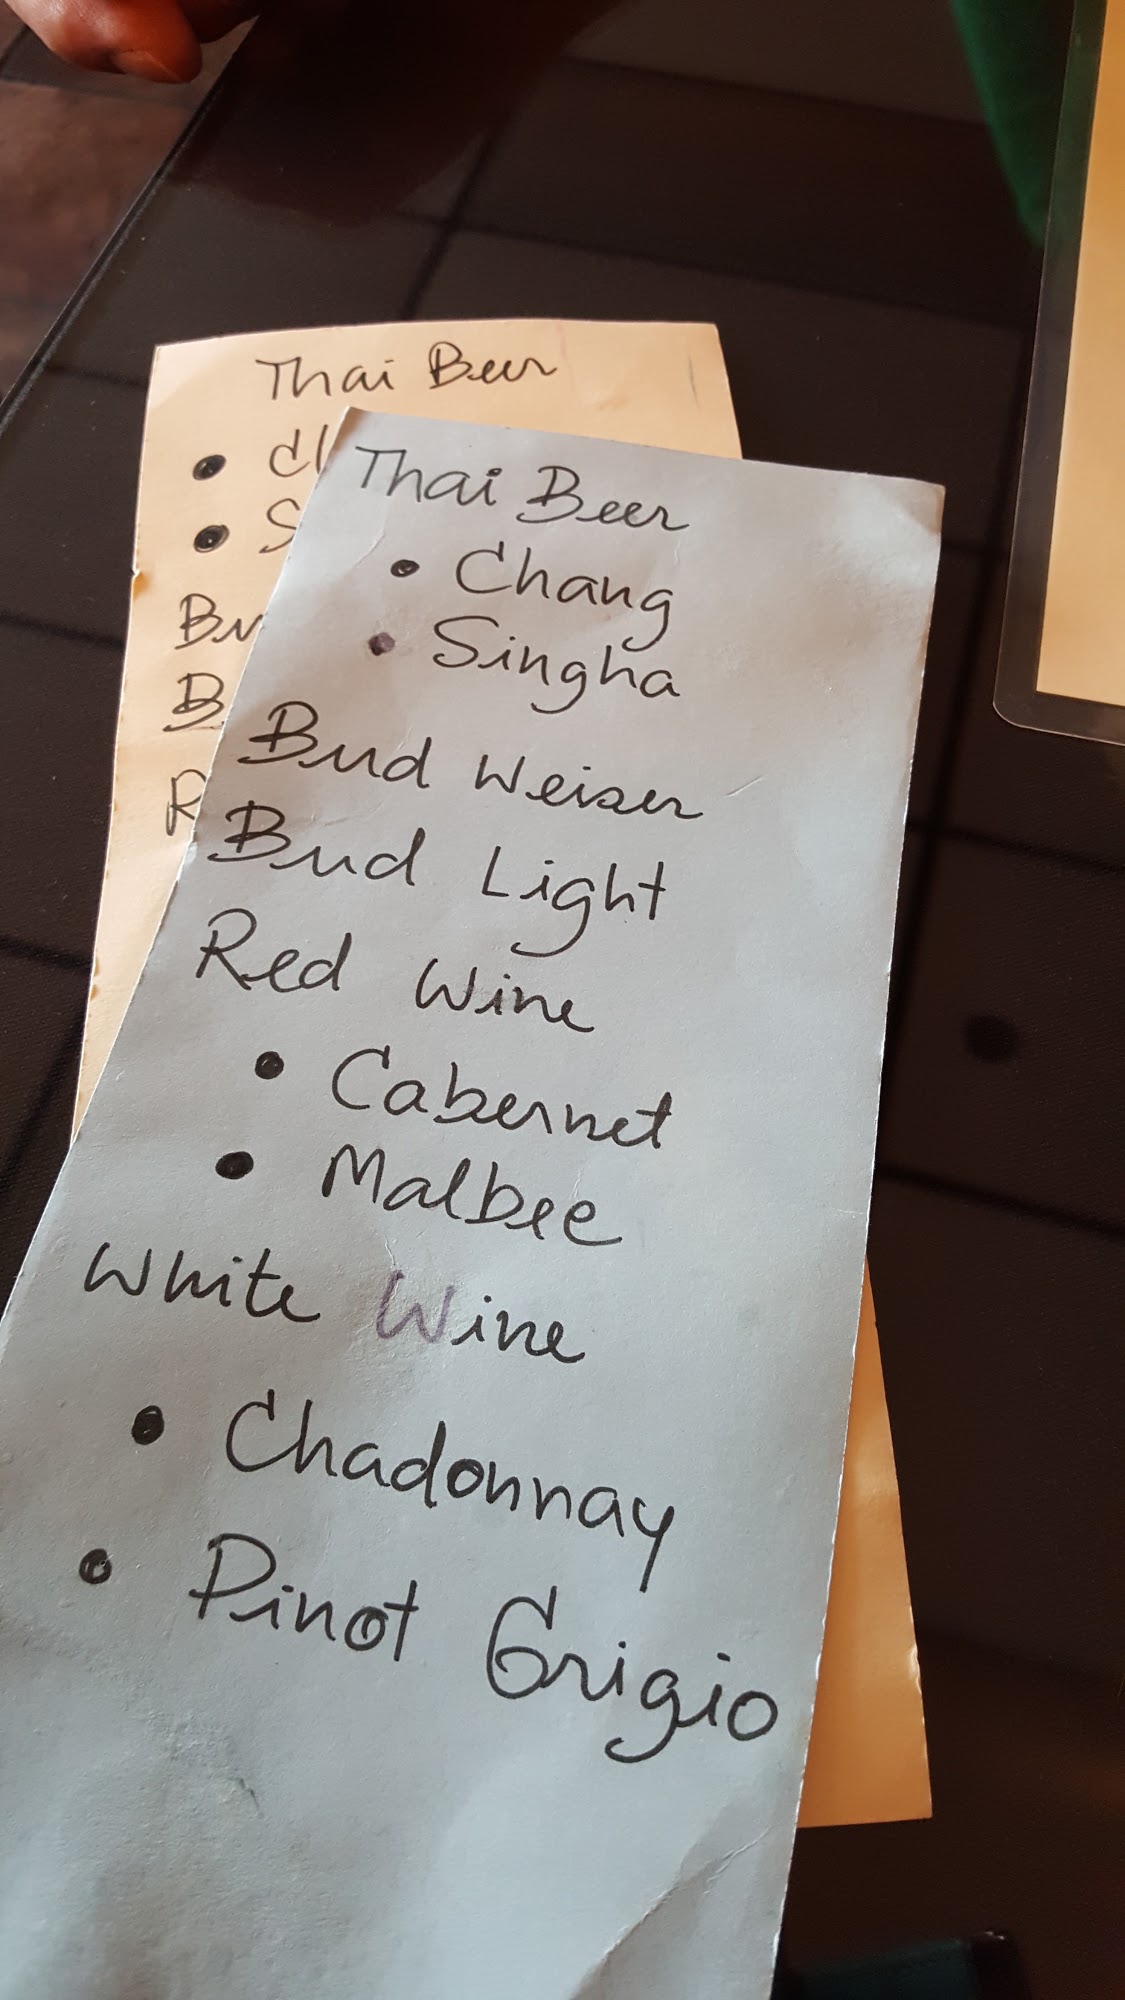 Thai Beer
Thai Beer
• Chang
• Singha
Bud Weiser
Bud Light
Red Wine
• Cabernet
• Malbee
White Wine
• Chadonnay
• Pinot Grigio